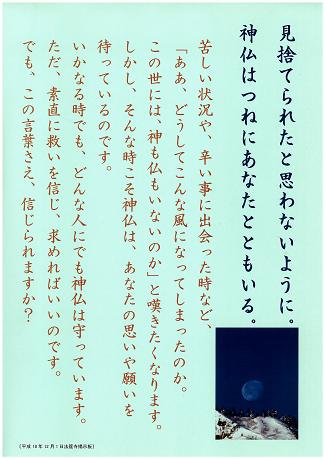 見捨てられたと思わないように。
神仏はつねにあなたとともいる。
苦しい状況や、辛い事に出会った時など、
「ああ、どうしてこんな風になってしまったのか。
この世には、神も仏もいないのか」と嘆きたくなります。
しかし、そんな時こそ神仏は、あなたの思いや願いを
待っているのです。
いかなる時でも、どんな人にでも神仏は守っています。
ただ、素直に救いを信じ、求めればいいのです。
でも、この言葉さえ、信じられますか？